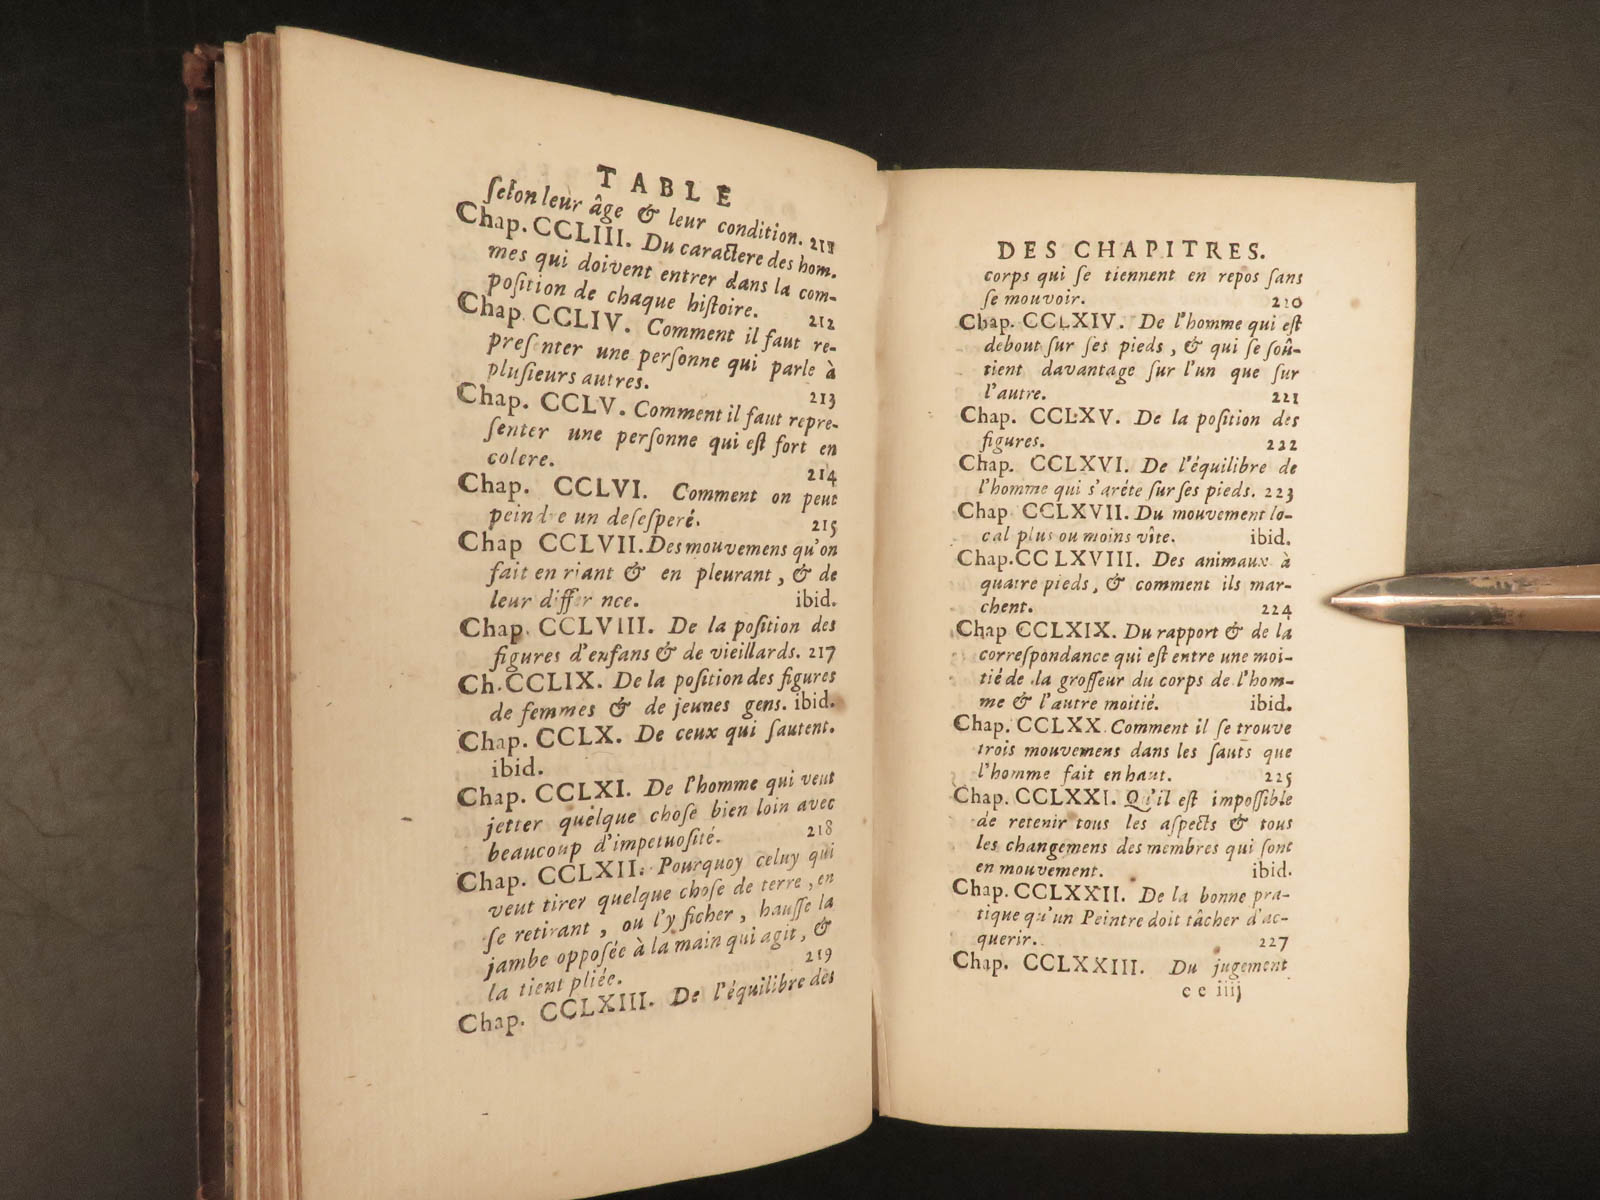 TABLE
ſelon leur âge & leur condition. 211
Chap. CCLIII. Du caractere des hom-
mes qui doivent entrer dans la com-
poſition de chaque hiſtoire. 212
Chap. CCLIV. Comment il faut re-
preſenter une perſonne qui parle à
pluſieurs autres. 213
Chap. CCLV. Comment il faut repre-
ſenter une perſonne qui eſt fort en
colere. 214
Chap. CCLVI. Comment on peut
peindre un deſeſperé. 215
Chap CCLVII. Des mouvemens qu'on
fait en riant & en pleurant, & de
leur differ nce. ibid.
Chap. CCLVIII. De la poſition des
figures d'enfans & de vieillards. 217
Ch. CCLIX. De la poſition des figures
de femmes & de jeunes gens. ibid.
Chap. CCLX. De ceux qui ſautent.
ibid.
Chap. CCLXI. De l'homme qui veut
jetter quelque choſe bien loin avec
beaucoup d'impetuoſité. 218
Chap. CCLXII. Pourquoy celuy qui
veut tirer quelque choſe de terre, en
ſe retirant, ou l'y ficher, hauſſe la
jambe oppoſée à la main qui agit, &
la tient pliée. 219
Chap. CCLXIII. De l'équilibre des
DES CHAPITRES.
corps qui ſe tiennent en repos ſans
ſe mouvoir. 220
Chap. CCLXIV. De l'homme qui eſt
debout ſur ſes pieds, & qui ſe ſoû-
tient davantage ſur l'un que ſur
l'autre. 221
Chap. CCLXV. De la poſition des
figures. 222
Chap. CCLXVI. De l'équilibre de
l'homme qui s'arête ſur ſes pieds. 223
Chap CCLXVII. Du mouvement lo-
cal plus ou moins vîte. ibid.
Chap. CCLXVIII. Des animaux à
quatre pieds, & comment ils mar-
chent. 224
Chap CCLXIX. Du rapport & de la
correſpondance qui eſt entre une moi-
tié de la groſſeur du corps de l'hom-
me & l'autre moitié. ibid.
Chap. CCLXX. Comment il ſe trouve
trois mouvemens dans les ſauts que
l'homme fait en haut. 225
Chap. CCLXXI. Qu'il eſt impoſſible
de retenir tous les aſpects & tous
les changemens des membres qui ſont
en mouvement. ibid.
Chap. CCLXXII. De la bonne pra-
tique qu'un Peintre doit tâcher d'ac-
querir. 227
Chap. CCLXXIII. Du jugement
e e iiij